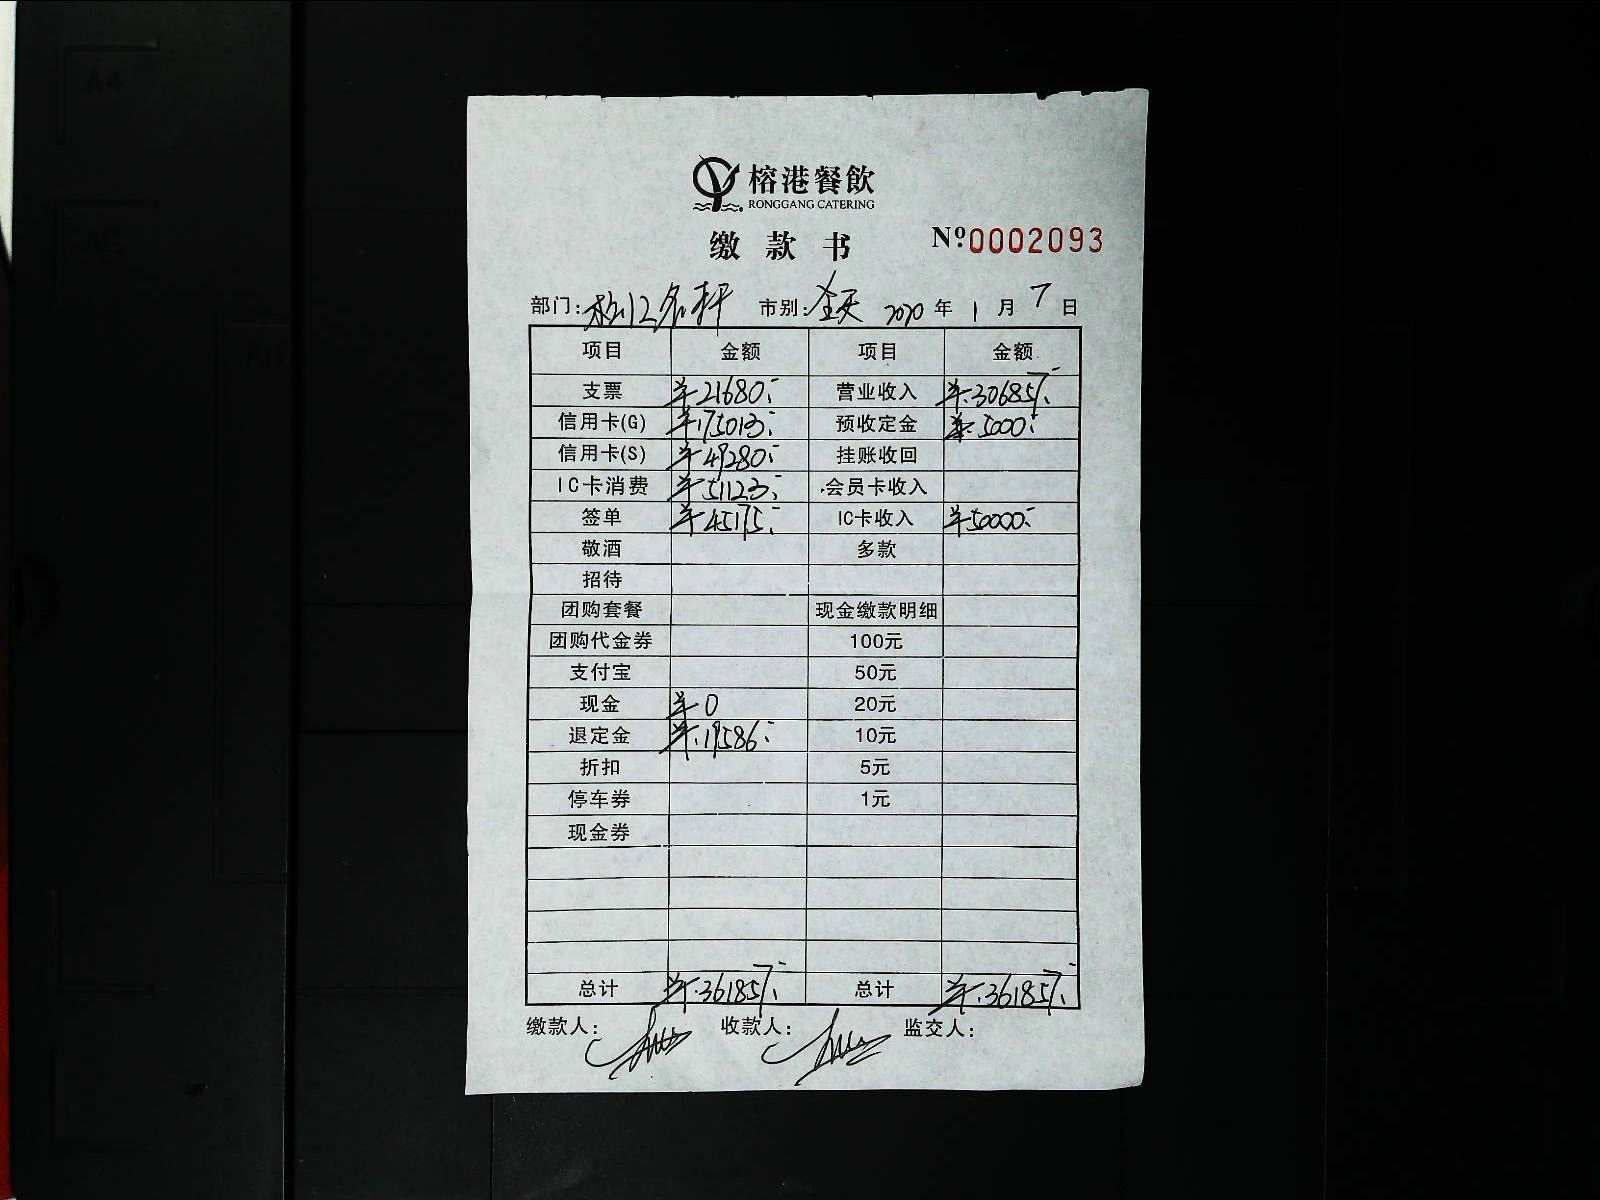 榕港餐飲
RONGGANG CATERING
缴款书 Nº0002093
部门: 松江名轩 市别: 全天 2020 年 1 月 7 日
项目 金额 项目 金额
支票 ¥21680.- 营业收入 ¥306857.-
信用卡(G) ¥175013.- 预收定金 ¥5000.-
信用卡(S) ¥49280.- 挂账收回
IC卡消费 ¥51123.- 会员卡收入
签单 ¥45175.- IC卡收入 ¥50000.-
敬酒 多款
招待
团购套餐 现金缴款明细
团购代金券 100元
支付宝 50元
现金 ¥0 20元
退定金 ¥19586.- 10元
折扣 5元
停车券 1元
现金券
总计 ¥361857.- 总计 ¥361857.-
缴款人: 收款人: 监交人: